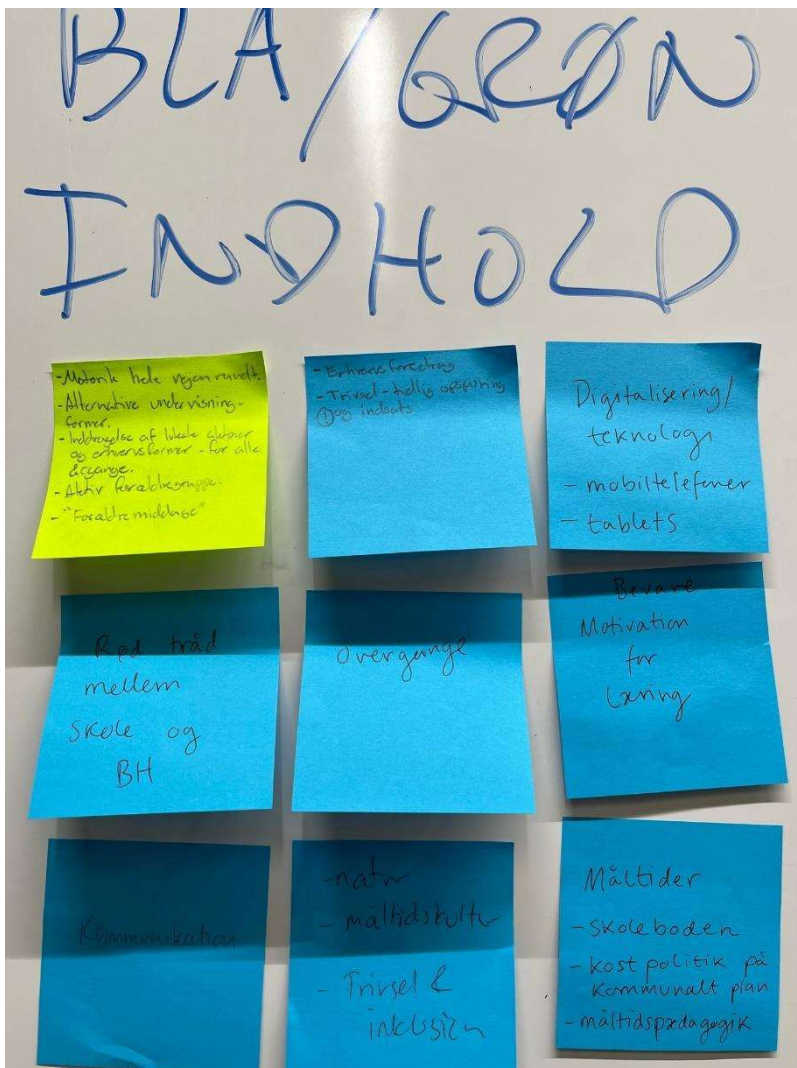 BLÅ/GRØN
INDHOLD
- Motorik hele vejen rundt.
- Alternative undervisning-
former.
- Inddragelse af lokale aktører
og erhvervsformer - for alle
årgange.
- Aktiv forældregruppe.
- "Forældremiddage"
- Erhvervsforedrag
- Trivsel - tidlig opsporing
og indsats
Digitalisering/
teknologi
- mobiltelefoner
- tablets
Rød tråd
mellem
Skole og
BH
Overgange
Bevare
Motivation
for
Læring
Kommunikation
- natur
- måltidskultur
- Trivsel &
inklusion
Måltider
- skoleboden
- kost politik på
kommunalt plan
- måltidspædagogik